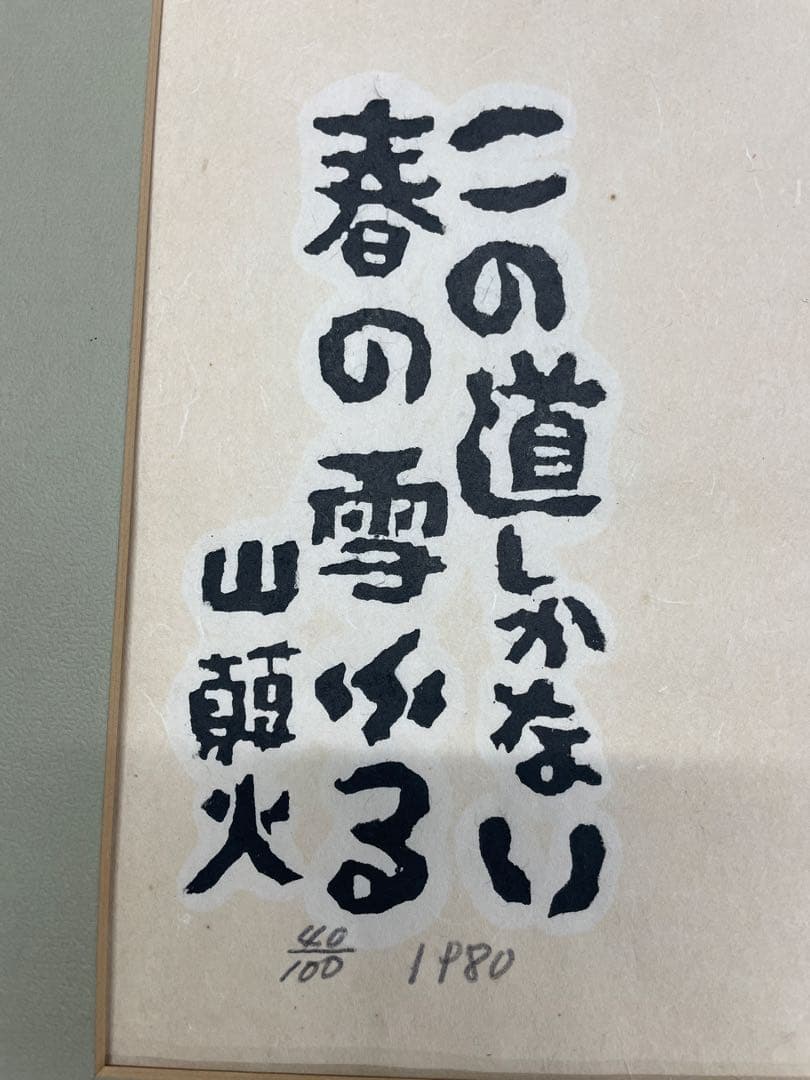 この道しかない
春の雪ふる
山頭火
40/100 1980